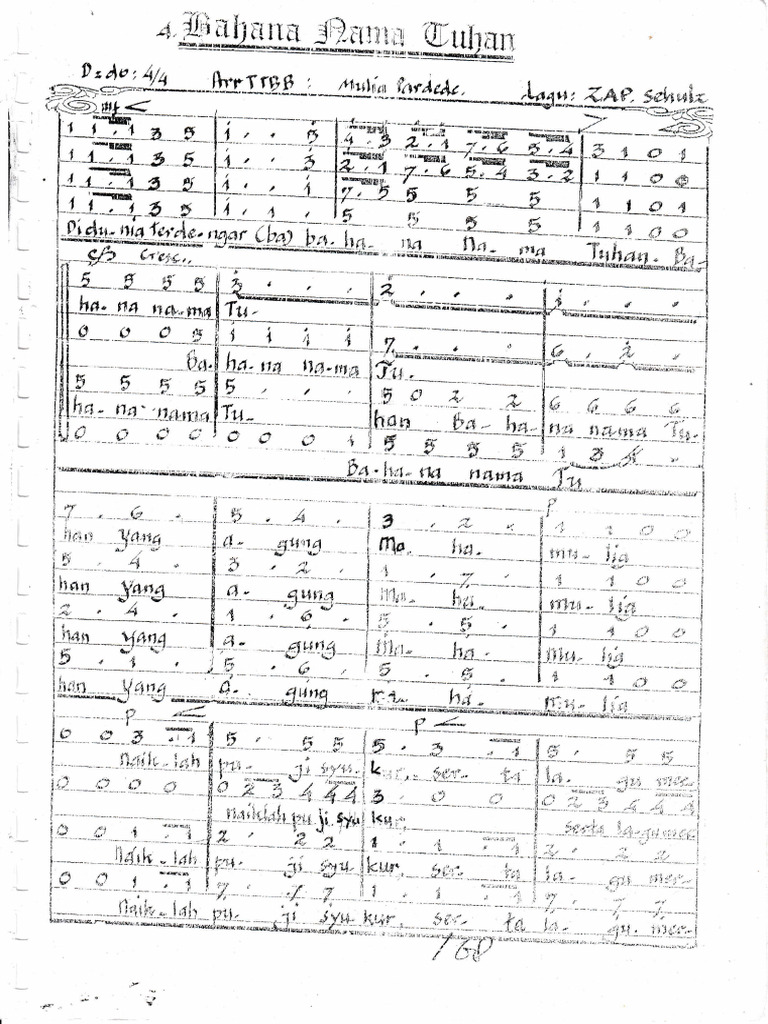 4. Bahana Nama Tuhan
D = do : 4/4 Arr TTBB : Mulia Pardede. Lagu : ZAP. Schulz
mf <
1 1 . 1 3 5 | i . . 3 | 4 . 3 2 . 1 7 . 6 5 . 4 | 3 1 0 1
1 1 . 1 3 5 | i . . 3 | 2 . 1 7 . 6 5 . 4 3 . 2 | 1 1 0 0
1 1 . 1 3 5 | i . . i | 7 . 5 5 5 5 | 1 1 0 1
1 1 . 1 3 5 | 1 . 1 . | 5 5 5 5 | 1 1 0 0
Didu-nia terde-ngar (ba) ba-ha-na Na-ma Tuhan. Ba-
Cresc..
5 5 5 5 | 3 . . . | 2 . . . | i . . .
ha-na na-ma Tu-
0 0 0 5 | 1 1 1 1 | 7 . . . | 6 . 2 .
Ba- ha-na na-ma Tu.
5 5 5 5 | 5 . . . | 5 0 2 2 | 6 6 6 6
ha-na nama Tu- han Ba-ha- na nama Tu-
0 0 0 0 | 0 0 0 1 | 5 5 5 5 | 1 3
Ba-ha-na nama Tu
p
7 . 6 . | 5 . 4 . | 3 . 2 . | 1 1 0 0
han yang a- gung Ma- ha- mu-lia
5 . 4 . | 3 . 2 . | 1 . 7 . | 1 1 0 0
han yang a- gung Ma- ha. mu-lia
2 . 4 . | 1 . 6 . | 5 . 5 . | 1 1 0 0
han yang a- gung Ma- ha- mu-lia
5 . 1 . | 5 . 6 . | 5 . 5 . | 1 1 0 0
han yang a- gung Ma- ha- mu-lia
p < p <
0 0 3 . 1 | 5 . 5 5 | 5 . 3 . 1 | 5 . 5 5
Naik-lah pu- ji syu- kur, ser- ta la- gu mer-
0 0 0 0 | 0 2 3 4 4 4 | 3 0 0 | 0 2 3 4 4 4
naiklah pu ji syu kur, serta la-gu mer-
0 0 1 . 1 | 2 . 2 2 | 1 . 1 . 1 | 2 . 2 2
Naik-lah pu- ji syu- kur, ser- ta la- gu mer-
0 0 1 . 1 | 7 . 7 7 | 1 . 1 . 1 | 7 . 7 7
Naik-lah pu- ji syu kur, ser- ta la- gu. mer-
168